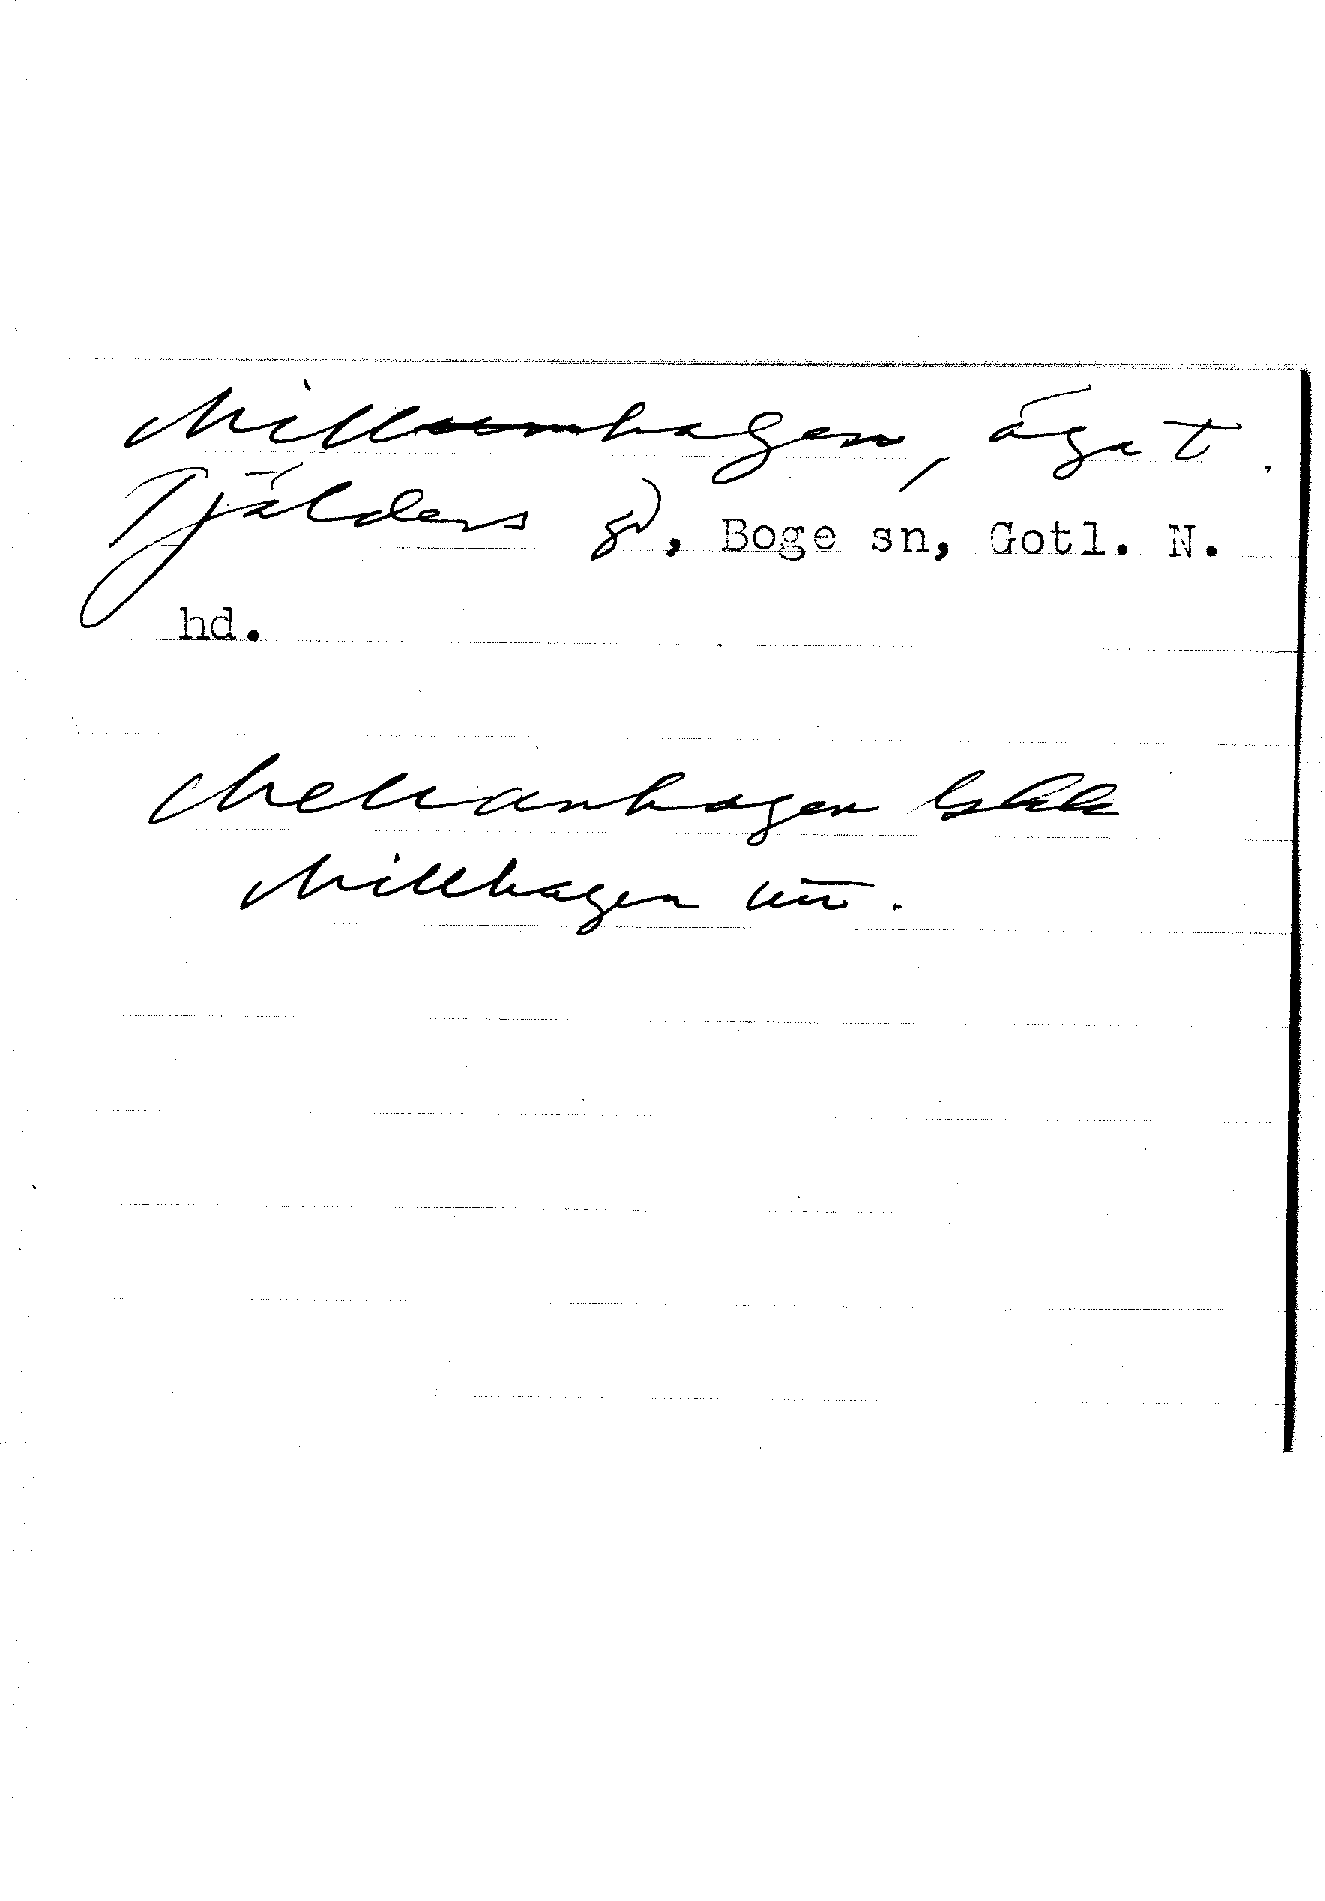 Millumhagen, ägat.
Tjälders gd, Boge sn, Gotl. N.
hd.
Mellanhagen
Millhagen